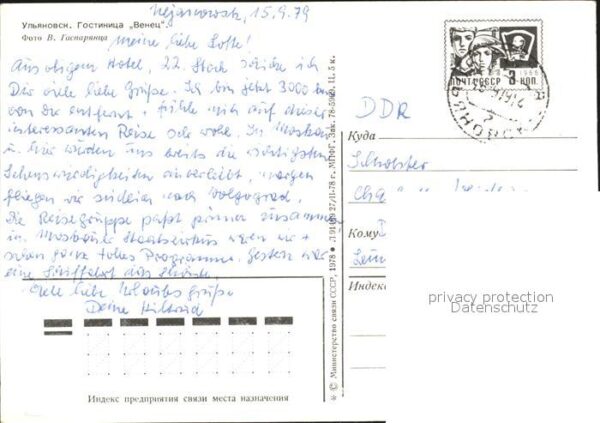 Uljanowsk, 15.9.79
Ульяновск. Гостиница „Венец".
Фото В. Гаспарянца
Meine liebe Lotte!
Aus obigem Hotel, 22. Stock schicke ich
Dir viele liebe Grüße. Ich bin jetzt 3000 km
von dir entfernt + fühle mich auf dieser
interessanten Reise sehr wohl. In Moskau
u. hier wurden uns bereits die wichtigsten
Sehenswürdigkeiten morgen
fliegen wir südlich nach Wolgograd.
Die Reisegruppe paßt prima zusammen
im Moskauer Staatszirkus waren wir +
sahen ganz tolles Programm. Gestern war
eine Schiffahrt das Schönste.
Viele liebe Urlaubsgrüße
Deine Hiltrud
Индекс предприятия связи места назначения
* © Министерство связи СССР, 1978 •
МПФГ. Зак. 78-5963. Ц. 5 к.
ПОЧТА СССР
3 КОП.
1966
DDR
Куда
Schuster
Кому
Индекс
privacy protection
Datenschutz